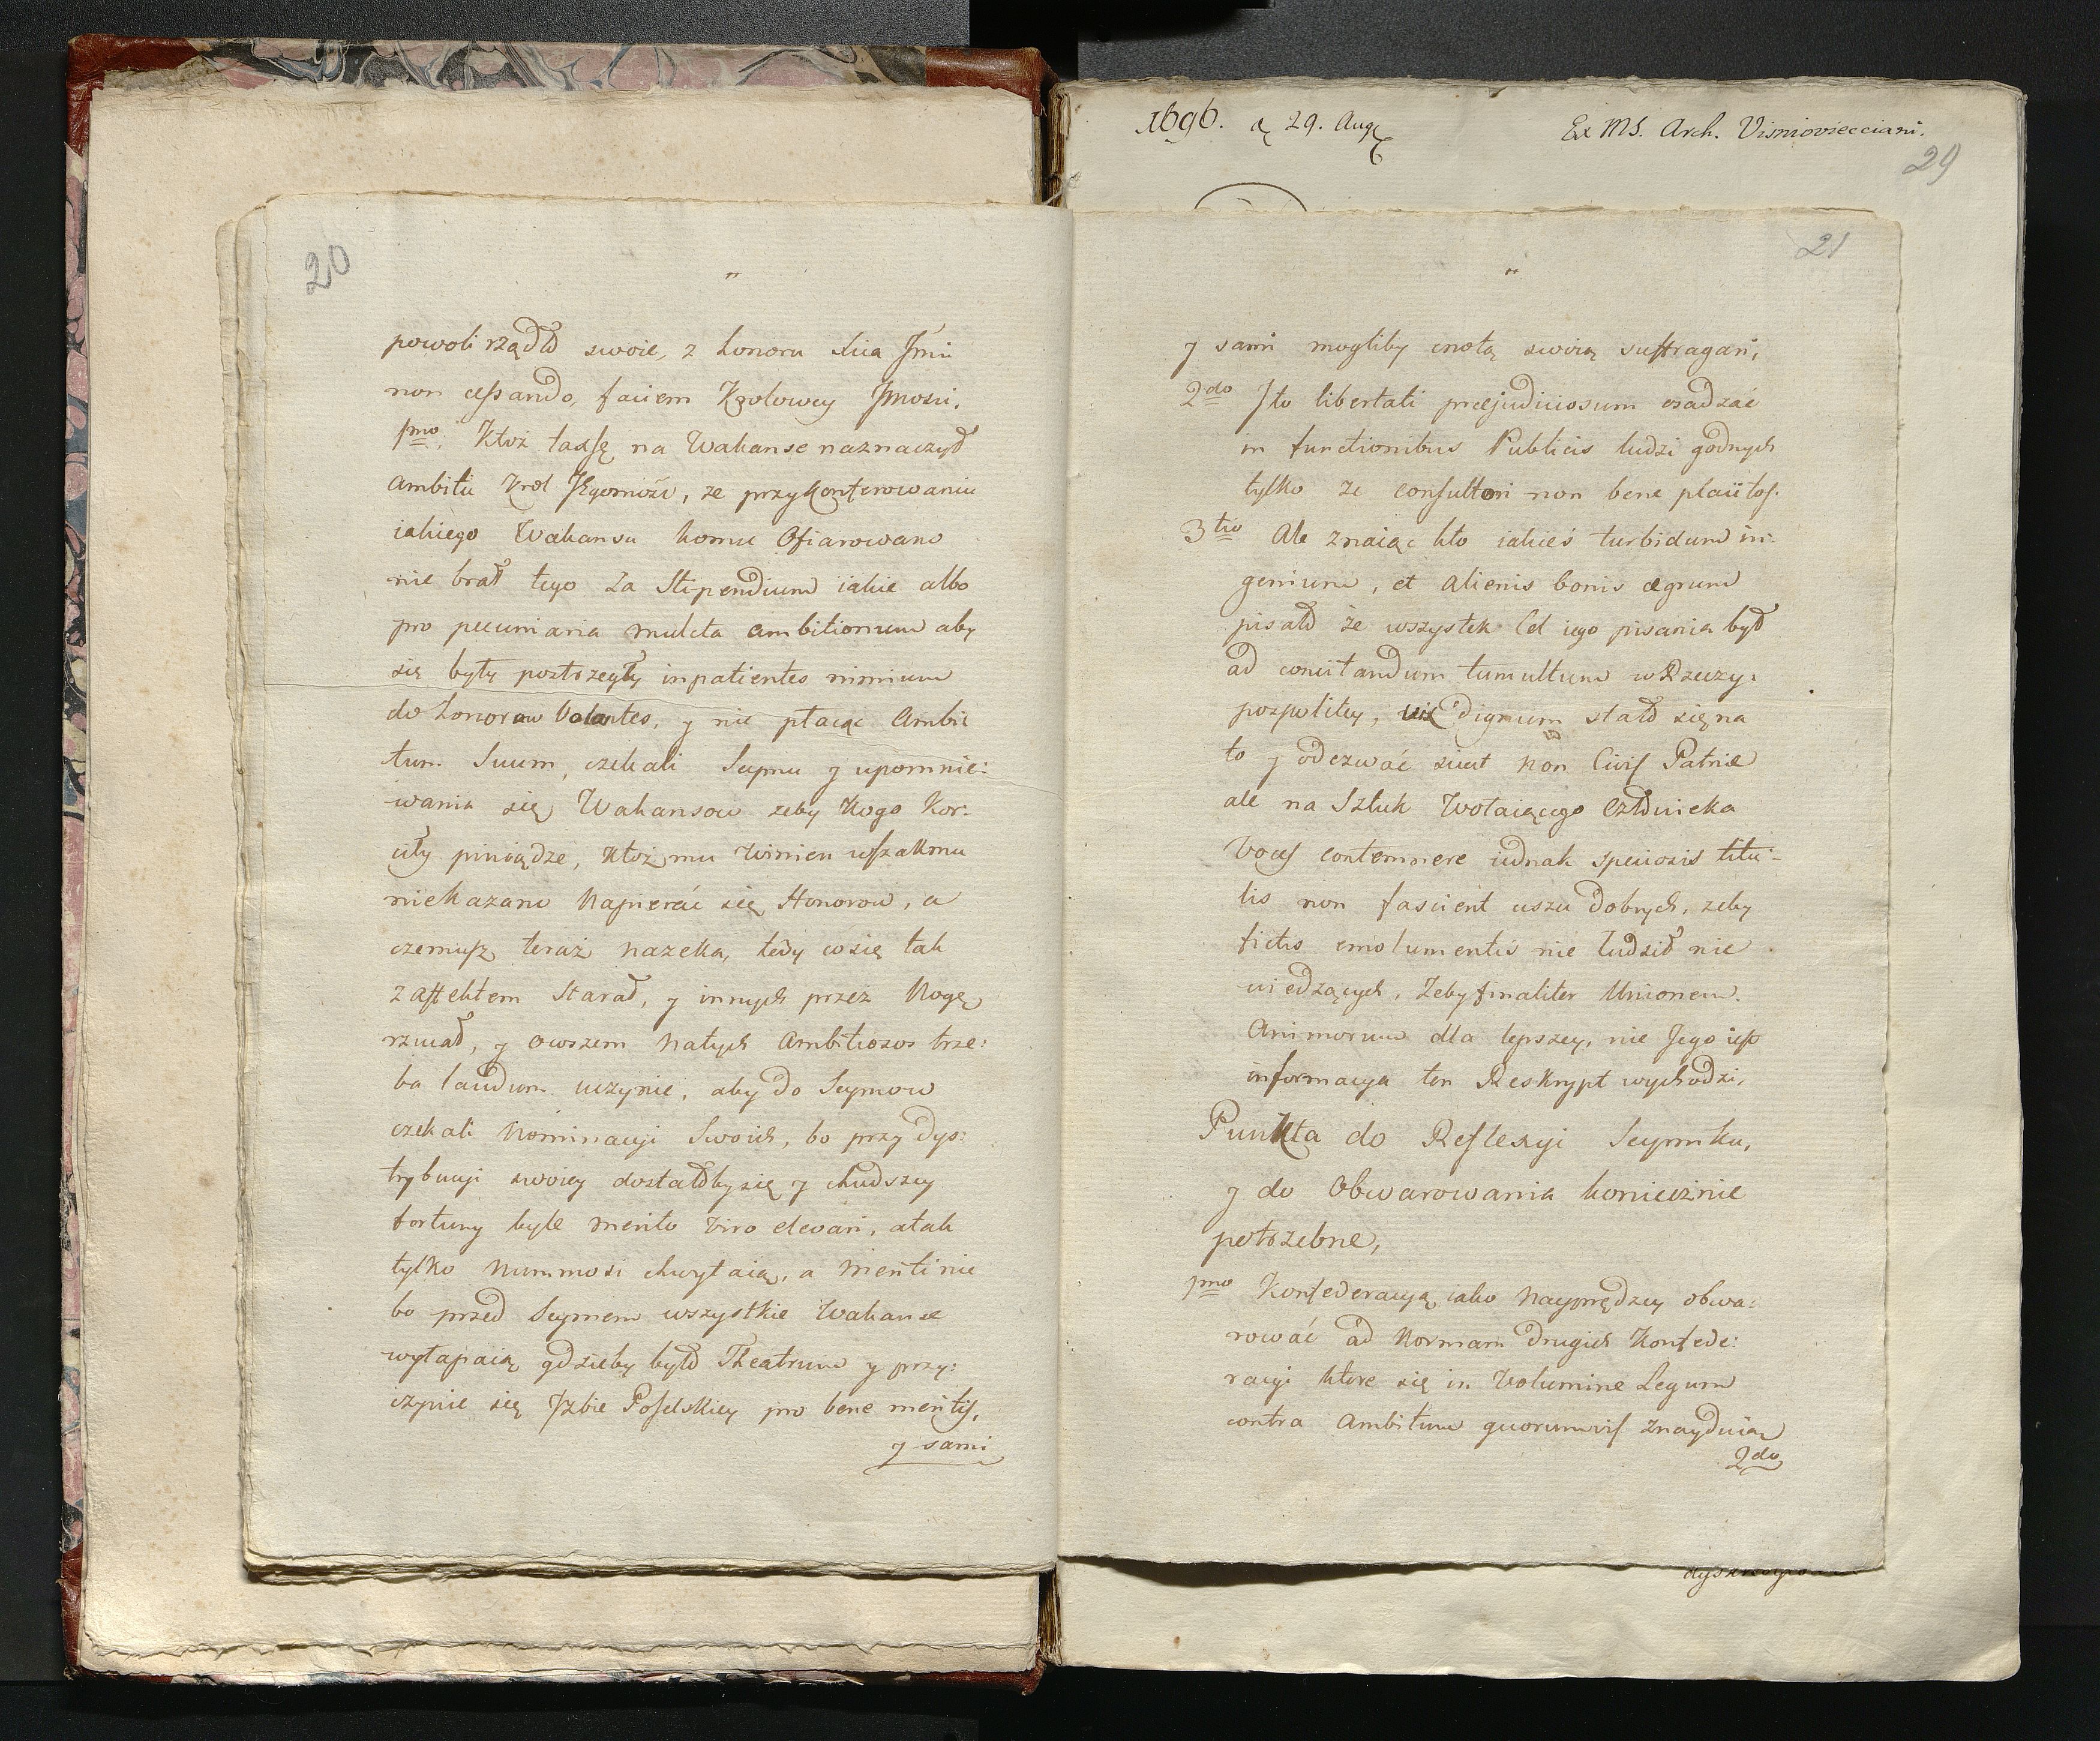 20
powoli rządł swoie, z honoru Xcia Jmci
non cessando, faciem Krolowey Jmosci.
pmo. Ktoż taxsę na Wakanse naznaczył
Ambitu Krol JEgomość, ze przy konferowaniu
iakiego Wakansu komu Ofiarowano
nie brał tego za Stipendium iakie albo
pro pecuniaria mulcta ambitionum aby
się były postrzegły inpatientes nimium
do honorow Volantes, y nie płacąc Ambi
tum Suum, czekali Seymu y upomnie:
wania się Wakansow zeby kogo kor:
ciły piniądze, ktoż mu winien wszak mu
niekazano Napierać się Honorow, a
czemusz teraz nazeka, tedy co się tak
z affektem Starał, y innych przez Nogę
rzucał, y owszem natych Ambitiosos trze:
ba laudum uczynic, aby do Seymow
czekali Nominacyi Swoich, bo przy dys:
trybucyi swoiey dostałby się y chudszey
fortuny byle merito viro elevari, atak
tylko Nummosi chwytaią, a meriti nie
bo przed Seymem wszystkie Wakanse
wyłapaią gdzieby było Theatrum y przy:
czynic się Jzbie Poselskiey pro bene meritis,
y sami
1696. d 29. Aug
Ex MS. Arch. Visnioviecciani.
29
21
y sami mogliby cnotą swoią suffragari,
2do Jto libertati præjudiciosum osadzać
in functionibus Publicis ludzi godnych
tylko ze consultori non bene placitos.
3tio Ale znaiąc kto iakieś turbidum in:
genium, et alienis bonis ægrum
pisało że wszystek Cel iego pisania był
ad concitandum tumultum w Rzeczy:
pospolitey, dignum stało się na
to y odezwać sicut non Civis Patriæ
ale na Sztuk Wołaiącego Człowieka
Voces contemnere iednak speciosis titu-
lis non fascient uszu dobrych, zeby
fictis emolumentis nie łudził nie
wiedzących, Zeby finaliter Unionem
Animorum dla lepszey, nie Jego iest
informacya ten Reskrypt wychodzi,
Punkta do Reflexyi Seymku,
y do Obwarowania koniecznie
potrzebne,
1mo Konfederacyą iako Nayprędzey obwa:
rować ad Normam drugich Konfede:
racyi ktore się in Volumine Legum
contra Ambitum quorumvis znayduią
2do